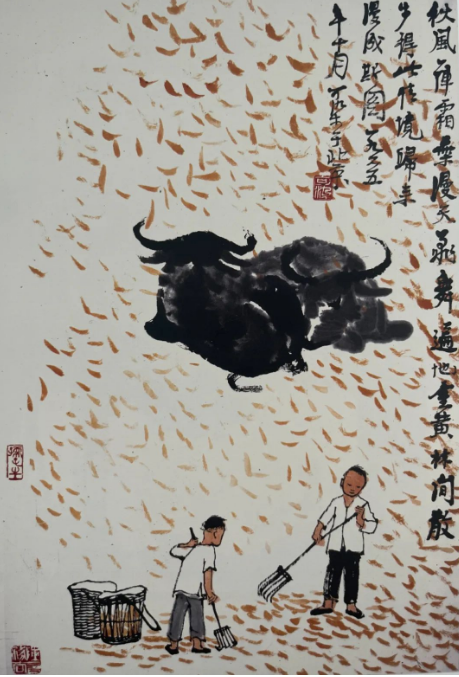 秋風陣霜葉漫天飛舞遍地金黄林间散
步得此情境歸来
漫成斯图一九六五
年十月可染于北京
可染